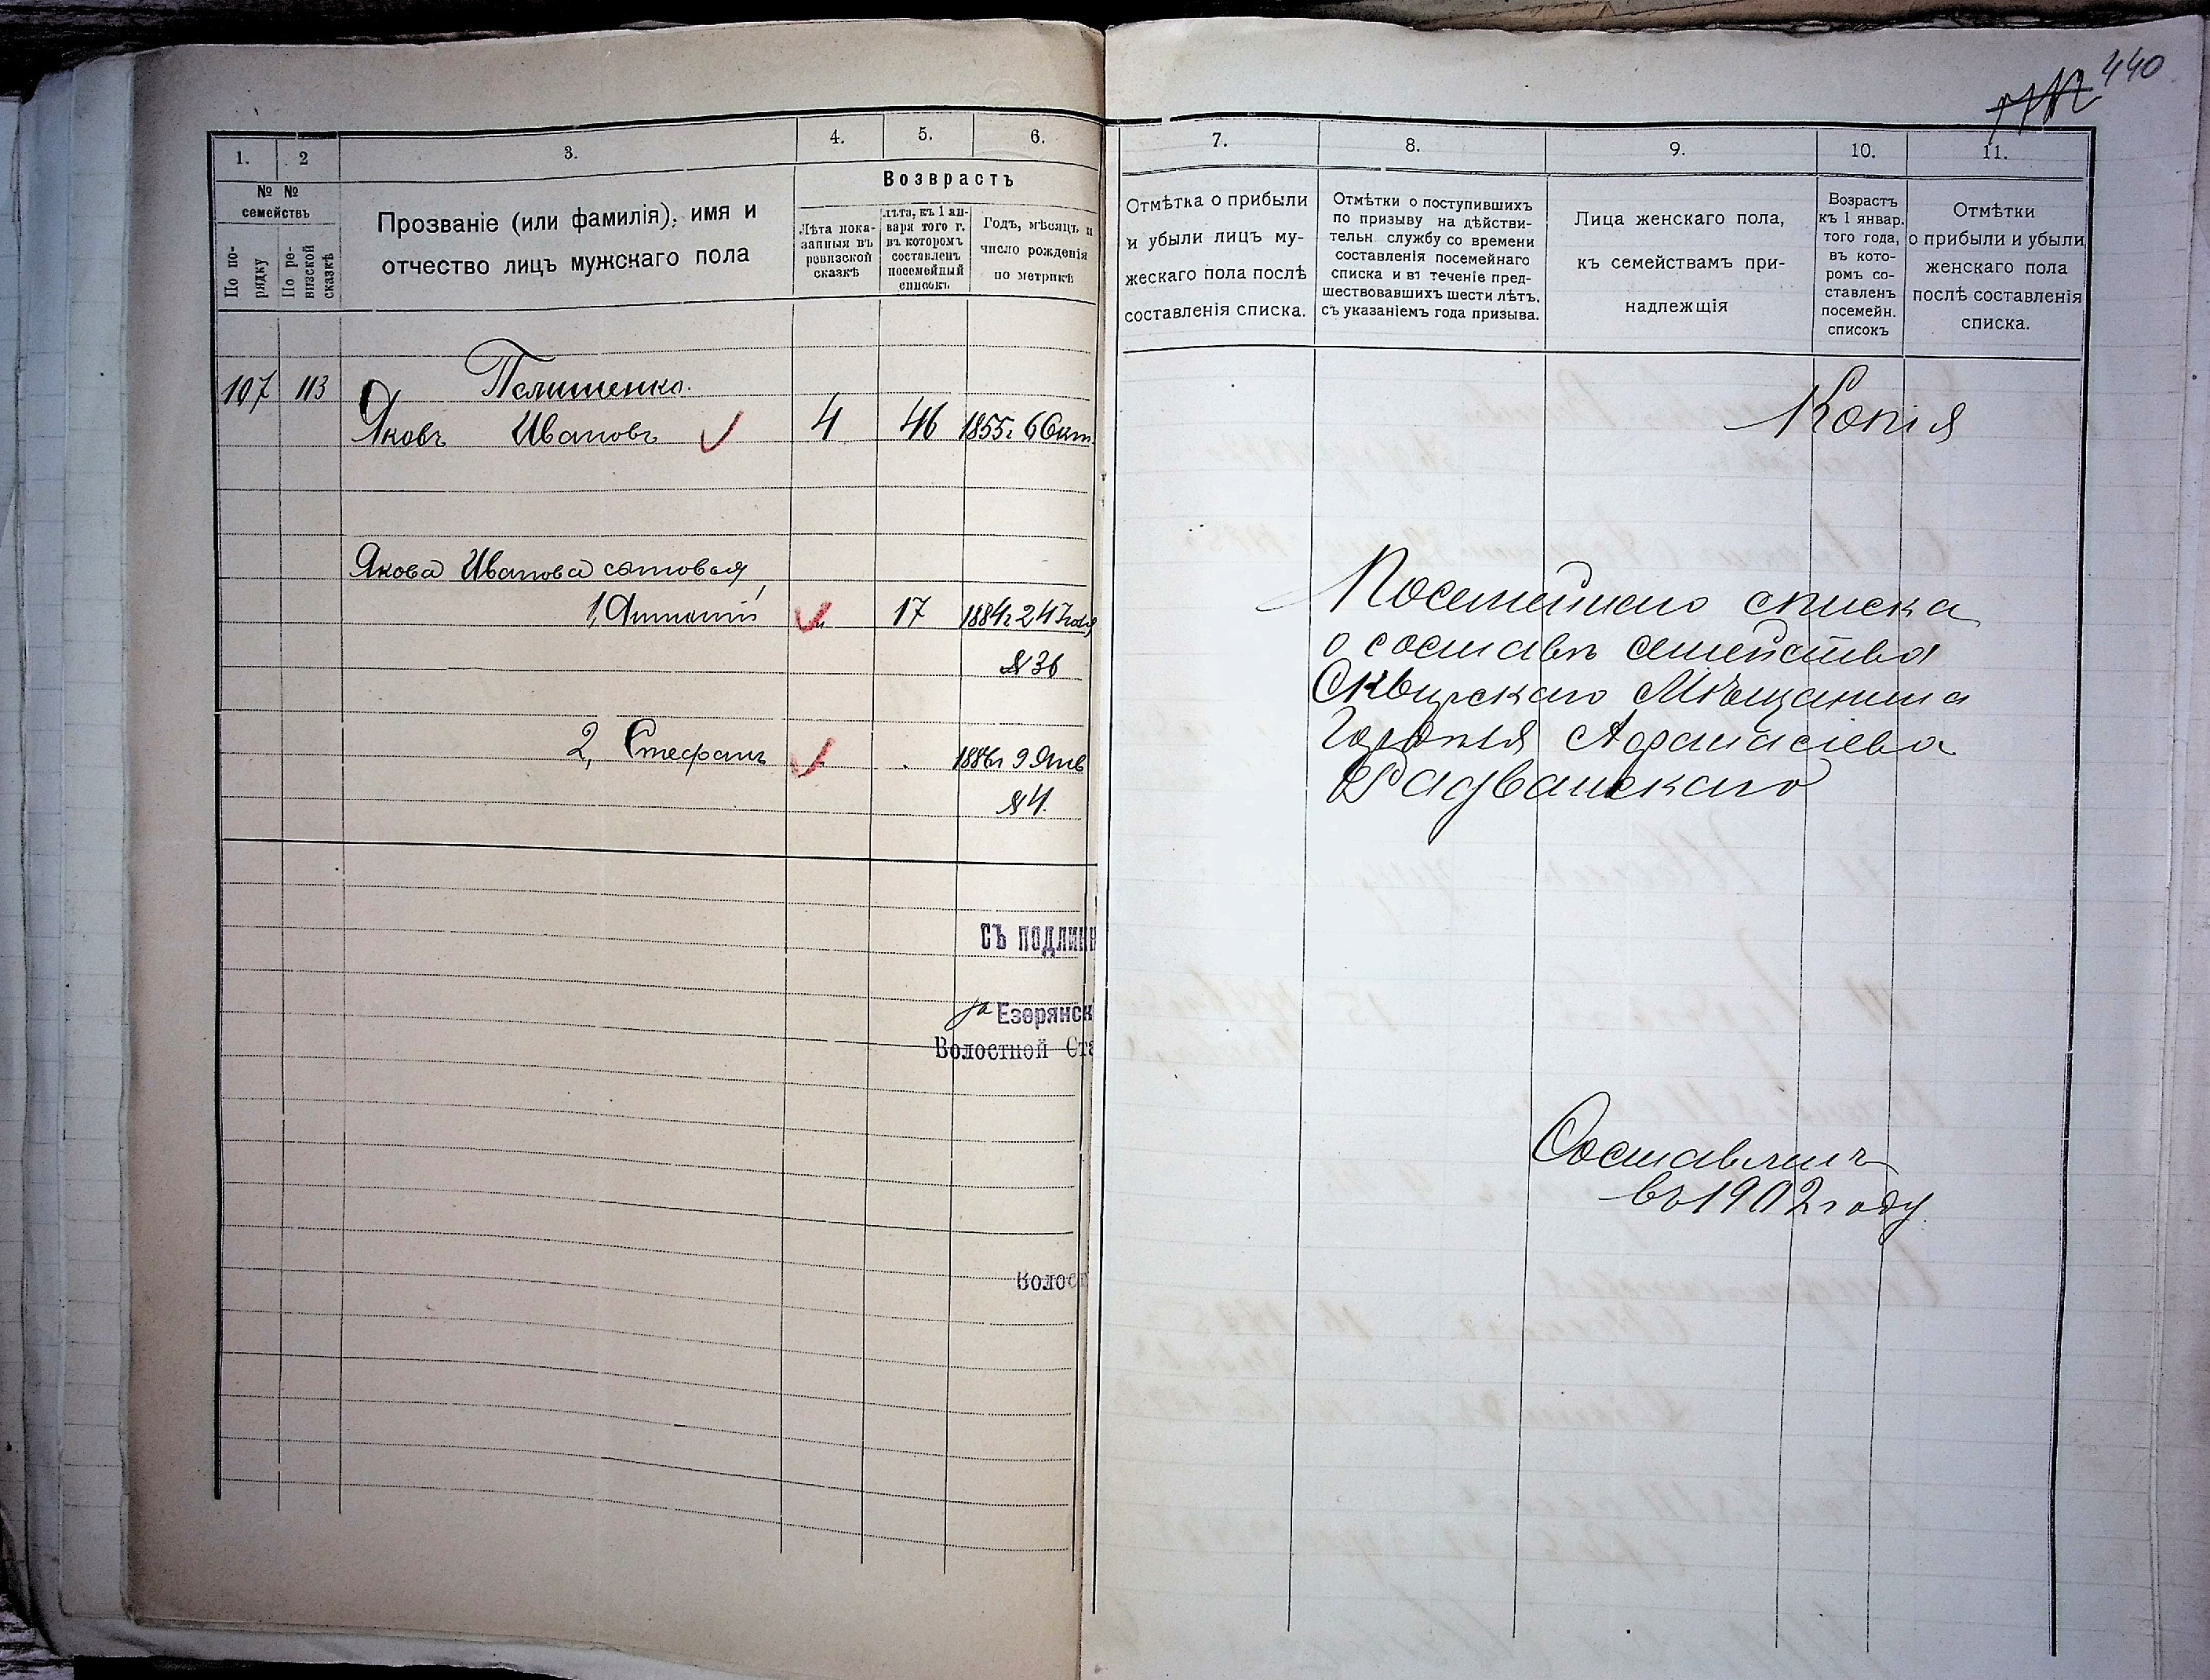 440
1.
2
3.
4.
5.
6.
№ №
семействъ
По по-
рядку
По ре-
визской
сказкѣ
Прозваніе (или фамилія), имя и
отчество лицъ мужскаго пола
Возврастъ
Лѣта пока-
занныя въ
ревизской
сказкѣ
лѣта, къ 1 ян-
варя того г.
въ которомъ
составленъ
посемейный
списокъ
Годъ, мѣсяцъ и
число рожденія
по метрикѣ
107
113
Яковъ Ивановъ
4
46
1855г 6 Окт.
Якова Иванова сыновья
1, Антоній
17
1884г 24 Іюля
№ 36
2, Стефанъ
1886г 9 Янв
№ 4.
СЪ ПОДЛИНН
за Езерянск
Волостной Ста
Волост
7.
8.
9.
10.
11.
Отмѣтка о прибыли
и убыли лицъ му-
жескаго пола послѣ
составленія списка.
Отмѣтки о поступившихъ
по призыву на дѣйстви-
тельн службу со времени
составленія посемейнаго
списка и въ теченіе пред-
шествовавшихъ шести лѣтъ,
съ указаніемъ года призыва.
Лица женскаго пола,
къ семействамъ при-
надлежщія
Возрастъ
къ 1 январ.
того года,
въ кото-
ромъ со-
ставленъ
посемейн.
списокъ
Отмѣтки
о прибыли и убыли
женскаго пола
послѣ составленія
списка.
Копія
Посемейнаго списка
о составѣ семейства
Сквирскаго Мѣщанина
Афанасіева
Радванскаго
Составленъ
въ 1902 году.